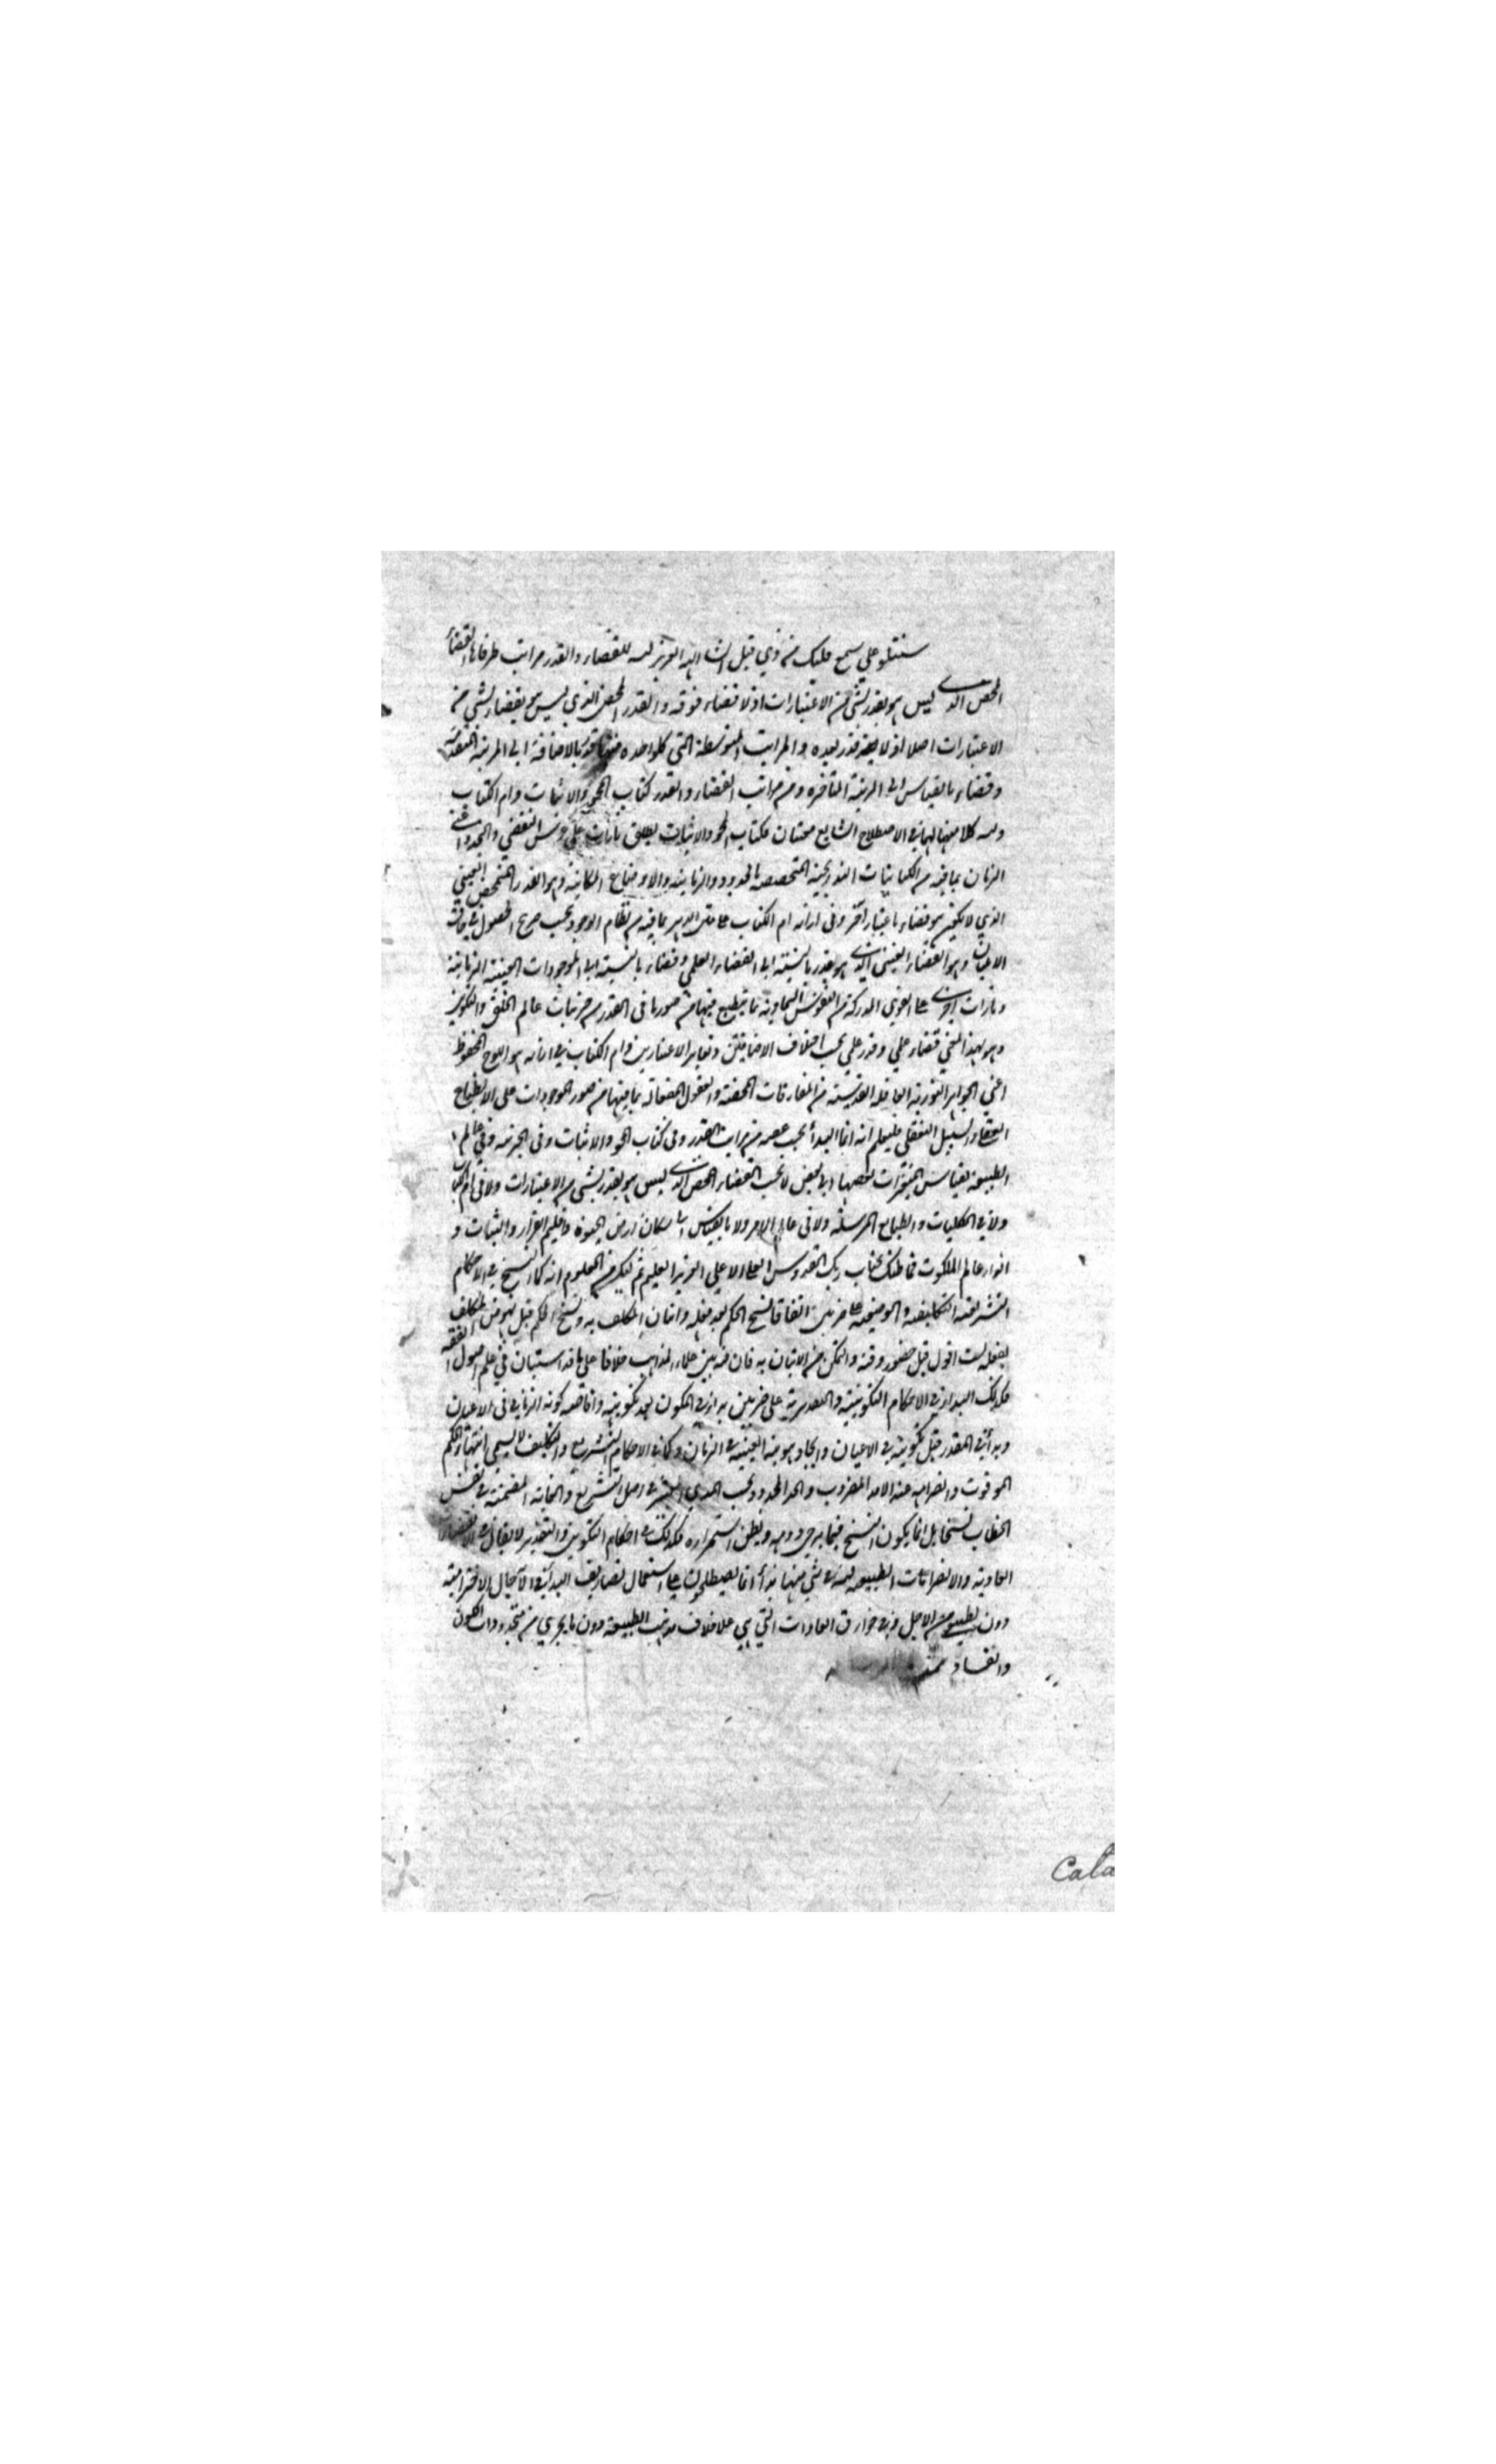 سنتلو علي سمع قلبك من ذي قبل انشا الله العزيز ان للقضاء والقدر مراتب طرفاها القضاء
المحض الذي ليس هو بقدر لشي من الاعتبارات اذ لا قضاء فوقه والقدر المحض الذي ليس هو بقضاء لشي من
الاعتبارات اصلا اذ لا قدر بعده والمراتب المتوسطة التي كل واحده منها قدر بالاضافة الى المرتبة المتقدمة
وقضاء بالقياس الى المرتبة المتاخره ومن مراتب القضاء والقدر كتاب المحو والاثبات وام الكتاب
وان كلا منهما لها في الاصطلاح الشايع معنيان فكتاب المحو والاثبات يطلق تارات على التقضي والتجدد اعني
الزمان بما فيه من الكيانيات التدريجية المتخصصه بالحدود الزمانيه والاوضاع المكانية وهو القدر المتمحض العيني
الذي لا يكون هو قضاء باعتبار آخر وفى ازائه ام الكتاب على متن الدهر بما فيه من نظام الوجود بحسب صريح الحصول في
الاعيان وهو القضاء العيني الذي هو قدر بالنسبة الى القضاء العلمي وقضاء بالنسبة الى الموجودات العينية الزمانية
وتارات اخرى على القوى المدركة من النفوس السماوية بما ينطبع فيها من صور ما فى القدر من جزئيات عالم الخلق والتكوين
وهو بهذا المعني قضاء علمي وقدر علمي بحسب اختلاف الاضافتين وتغاير الاعتبارين وام الكتاب في ازائه هو اللوح المحفوظ
اعني الجواهر النورية العاقلة القدسية من المفارقات المحضة والعقول الفعالة بما فيها من صور الموجودات على الانطباع
العقلي والسبيل التعقلي فليعلم انه انما البدأ بحسب مراتب القدر وفى كتاب المحو والاثبات وفى الجزئيه وفي عالم
الطبيعه بقياس المتغيرات بعضها الى بعض لا بحسب القضاء المحض الذي ليس هو بقدر لشي من الاعتبارات ولا فى ام الكتاب
ولا في الكليات والطبايع المرسلة ولا فى عالم الامر ولا بالقياس الى سكان ارض الحيوة واقليم القرار والثبات و
انوار عالم الملكوت فما ظنك بجناب ربك القدوس العلي الاعلي العزيز العليم ثم ليكن من المعلوم انه كما النسخ في الاحكام
التشريعيه التكليفيه والوضعيه على ضربين اتفاقا نسخ الحكم بعد فعله واتيان المكلف به ونسخ الحكم قبل نهوض المكلف
بفعله لست اقول قبل حضور وقته والتمكن من الاتيان به فان فيه بين علماء المذاهب خلافا على ما قد استبان في علم اصول الفقه
فكذلك البدا في الاحكام التكوينية والتقديرية على ضربين بدا في المكون بعد تكوينه وافاضه كونه الزماني فى الاعيان
وبدأ في المقدر قبل تكوينه في الاعيان وايجاد هويته العينية في الزمان وكما في الاحكام التشريع والتكليف لا يسمى انتهاء الحكم
الموقوت وانصرامه عند الامد المضروب والحد المحدود بحسب المدي في اصل التشريع والغاية المضمنة في نفس
الخطاب نسخا بل انما يكون النسخ فيما يرجى دوامه ويظن استمراره فكذلك في احكام التكوين والتقدير لا يقال في
العادية والانصرامات الطبيعيه ان في شي منها بدأ انما يصطلحون على استعمال تصاريف البدأ في الآجال الاخترامية
دون الطبيعي من الاجل وفي خوارق العادات التي هي على خلاف مذهب الطبيعة دون ما يجري من متجددات الكون
والفساد
Cala